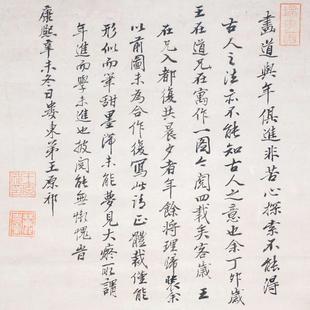 畫道與年俱進非苦心探索不能得
古人之法亦不能知古人之意也余丁卯歲
王在道兄在寓作一圖今閱四載矣客歲 王
在兄入都復共晨夕者年餘將理歸裝余
以前圖未為合作復寫此請正體裁僅能
形似而筆甜墨滯未能夢見大癡所謂
年進而學未進也披閱能無慚愧旹
康熙辛未冬日婁東弟王原祁